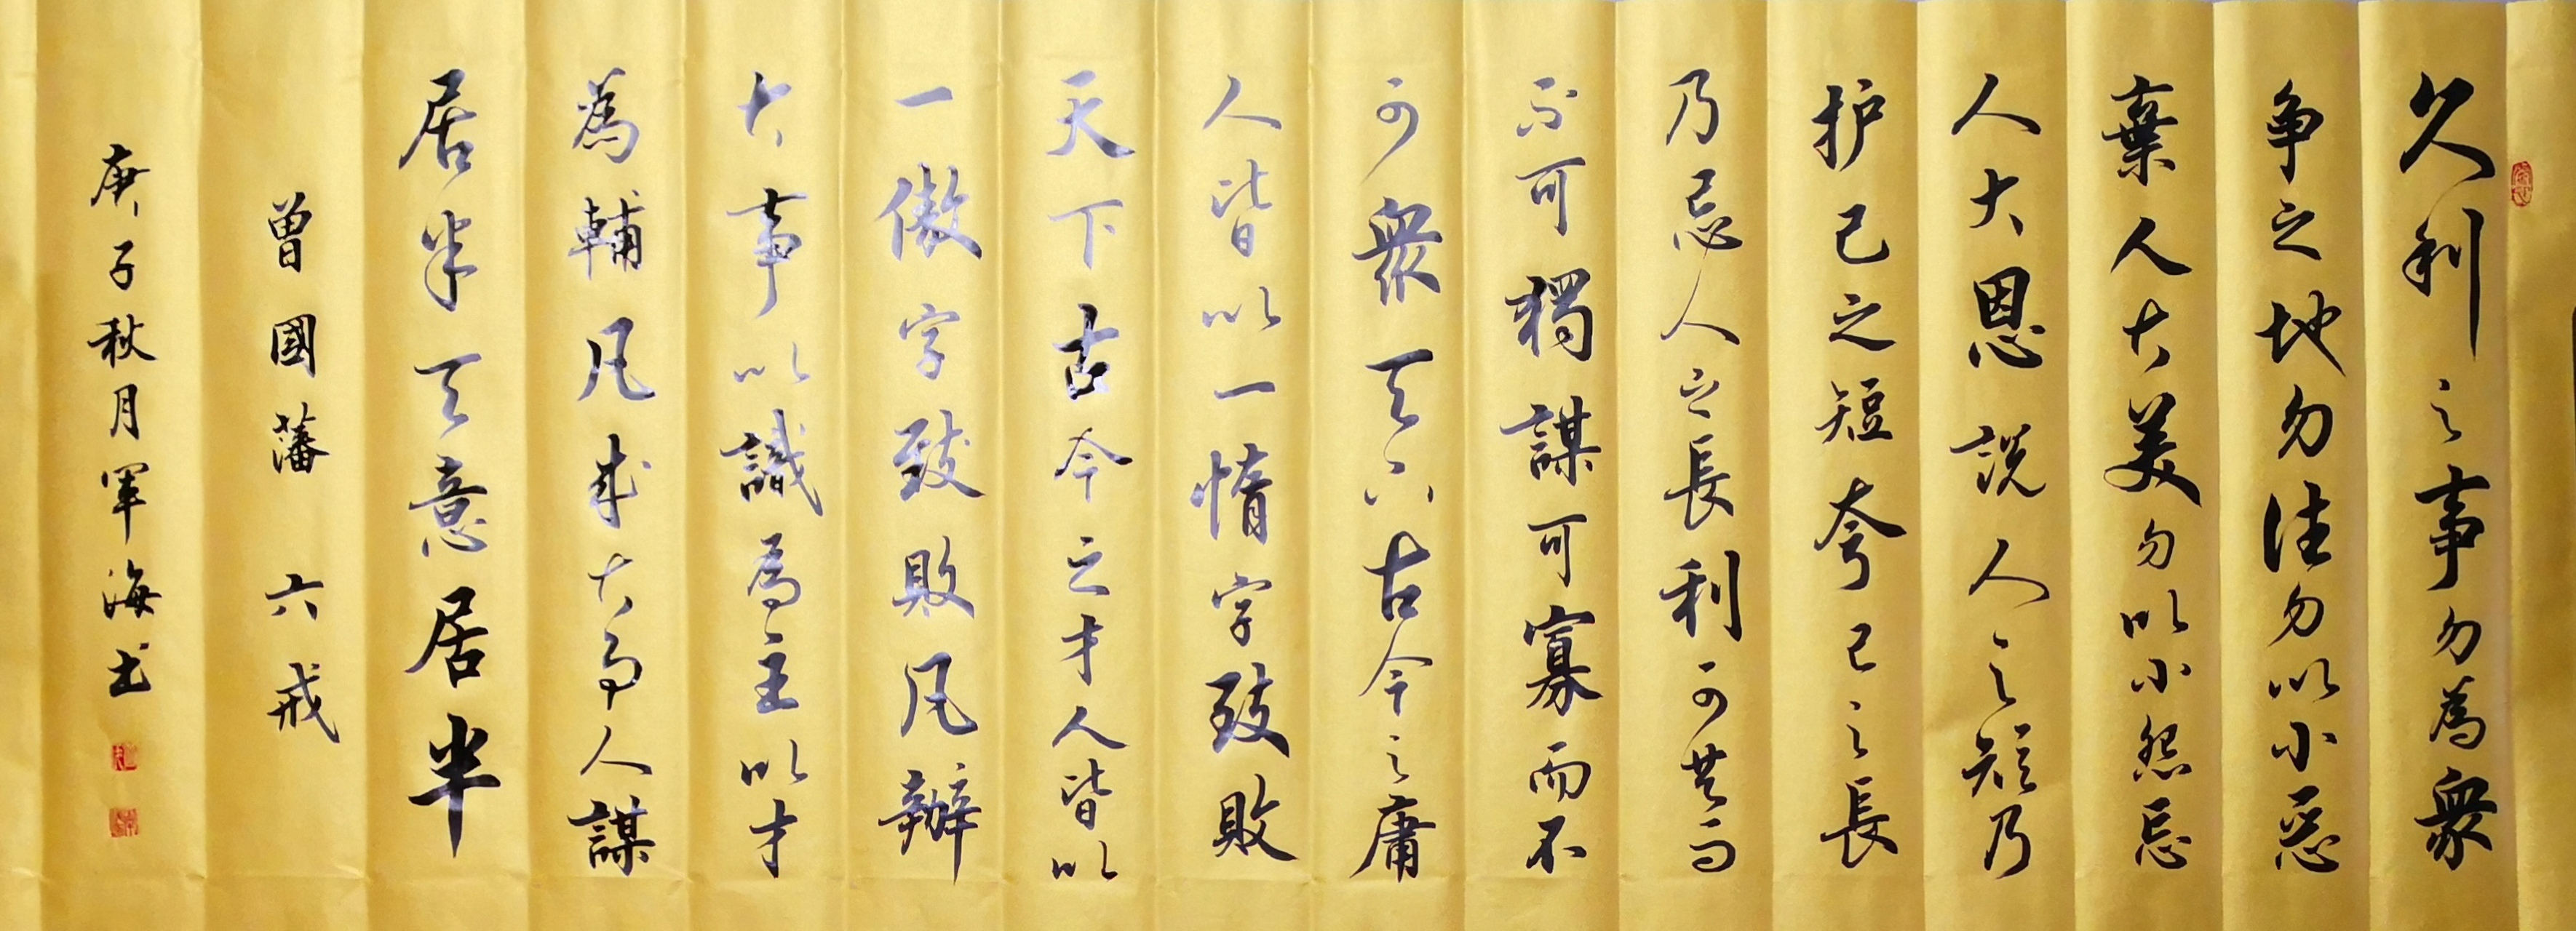 久利之事勿為衆
争之地勿往勿以小惡
棄人大美勿以小怨忘
人大恩說人之短乃
护己之短夸己之長
乃忌人之長利可共而
不可獨謀可寡而不
可衆天下古今之庸
人皆以一惰字致敗
天下古今之才人皆以
一傲字致敗凡辦
大事以識為主以才
為輔凡成大事人謀
居半天意居半
曾國藩 六戒
庚子秋月軍海书